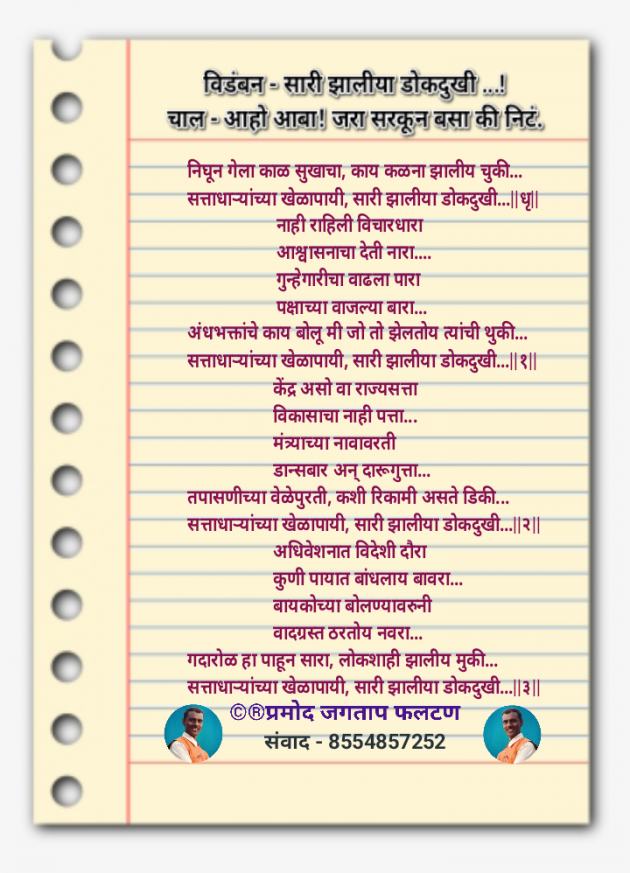 विडंबन - सारी झालीया डोकदुखी ...!
चाल - आहो आबा! जरा सरकून बसा की निटं.
निघून गेला काळ सुखाचा, काय कळना झालीय चुकी...
सत्ताधाऱ्यांच्या खेळापायी, सारी झालीया डोकदुखी...||धृ||
नाही राहिली विचारधारा
आश्वासनाचा देती नारा....
गुन्हेगारीचा वाढला पारा
पक्षाच्या वाजल्या बारा...
अंधभक्तांचे काय बोलू मी जो तो झेलतोय त्यांची थुकी...
सत्ताधाऱ्यांच्या खेळापायी, सारी झालीया डोकदुखी...||१||
केंद्र असो वा राज्यसत्ता
विकासाचा नाही पत्ता...
मंत्र्याच्या नावावरती
डान्सबार अन् दारूगुत्ता...
तपासणीच्या वेळेपुरती, कशी रिकामी असते डिकी...
सत्ताधाऱ्यांच्या खेळापायी, सारी झालीया डोकदुखी...||२||
अधिवेशनात विदेशी दौरा
कुणी पायात बांधलाय बावरा...
बायकोच्या बोलण्यावरुनी
वादग्रस्त ठरतोय नवरा...
गदारोळ हा पाहून सारा, लोकशाही झालीय मुकी...
सत्ताधाऱ्यांच्या खेळापायी, सारी झालीया डोकदुखी...||३||
©®प्रमोद जगताप फलटण
संवाद - 8554857252